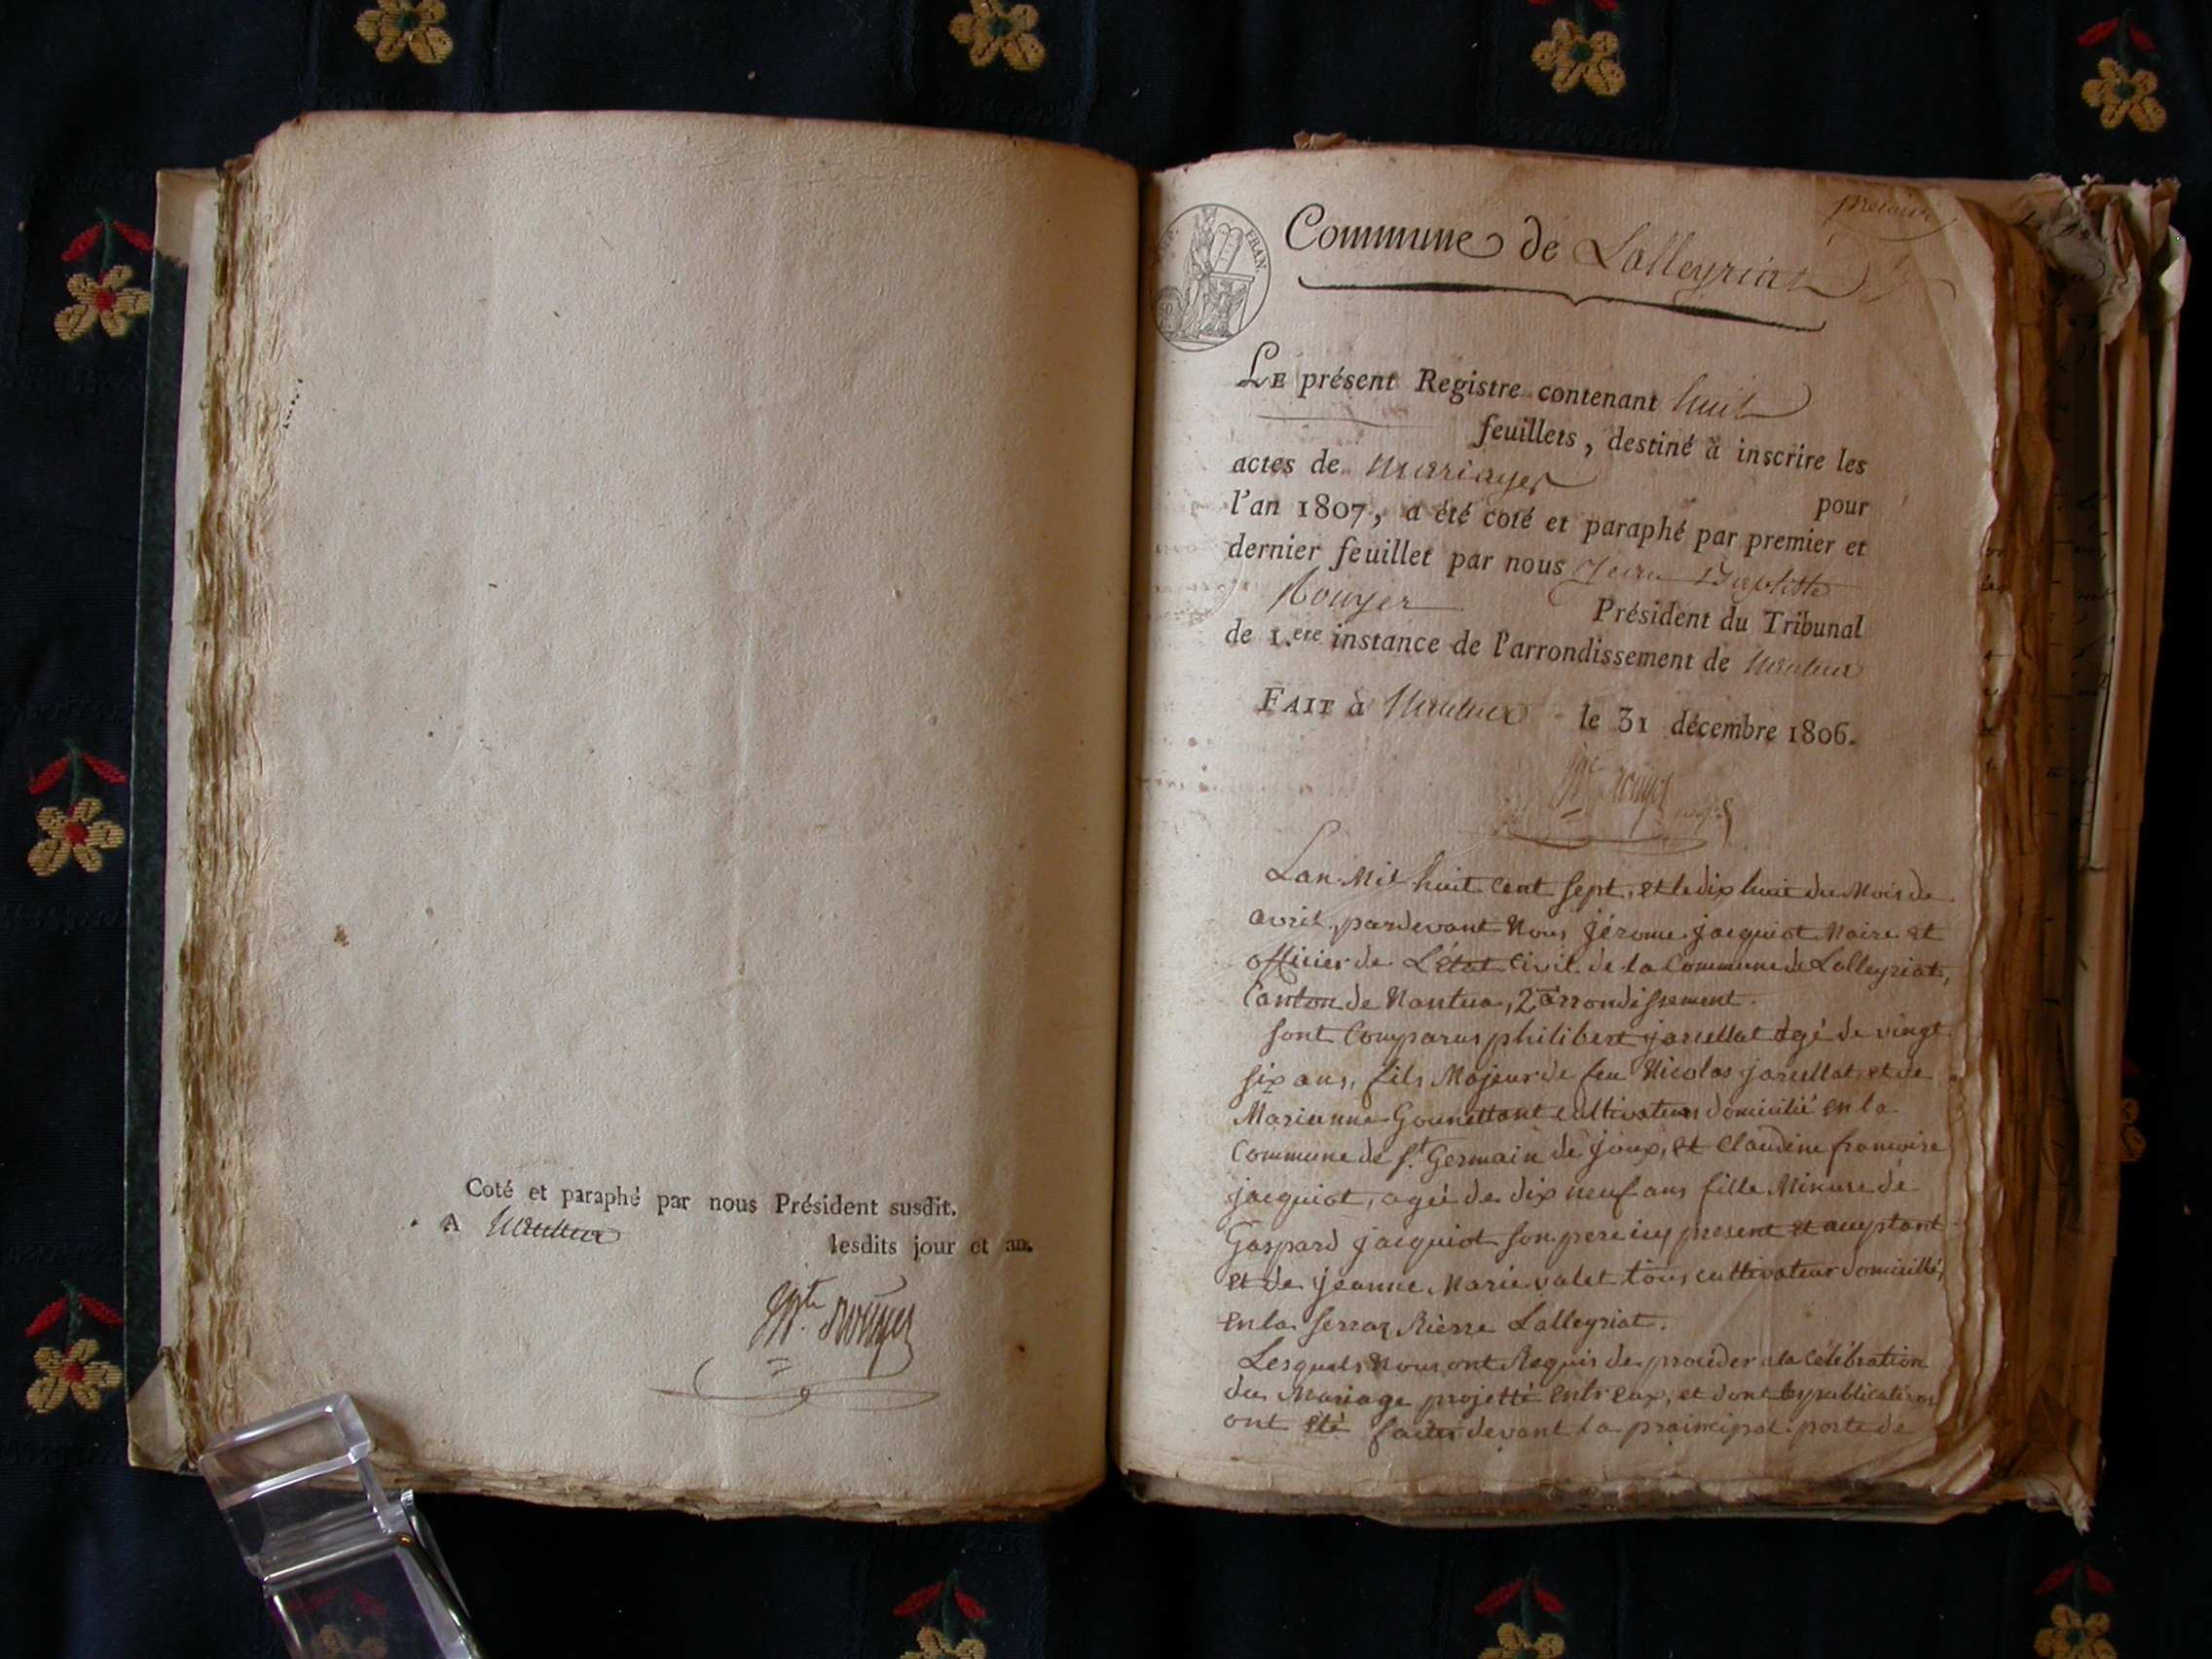 Coté et paraphé par nous Président susdit.
A Nantua
lesdits jour et an.
Bpte. Rouyer
premier
FRAN.
Commune de Lalleyriat
LE présent Registre contenant huit
feuillets, destiné à inscrire les
actes de mariages
pour
l'an 1807, a été coté et paraphé par premier et
dernier feuillet par nous Jean Baptiste
Rouyer
Président du Tribunal
de 1.ere instance de l'arrondissement de Nantua
FAIT à Nantua le 31 décembre 1806.
Rouyer
Lan Mil huit cent sept, et le dix huit du Mois de
avril, pardevant Nous jérome jacquiot Maire et
officier de L'état civil de la Commune de Lalleyriat,
Canton de Nantua, 2e arrondissement.
sont Comparus philibert jarsellat agé de vingt
six ans, fils Majeur de feu Nicolas jarsellat et de
Marianne Gounettant cultivateur domicilié en la
Commune de St. Germain de joux, et Claudine francoise
jacquiot, ageé de dix neuf ans fille Mineure de
Gaspard jacquiot son pere icy present et acceptant
et de jeanne Marie valet tous cultivateur domiciliés
en la serraz Rièrre Lalleyriat.
Lesquels Nous ont Requis de proceder a la célébration
du Mariage projetté entr'eux, et dont les publications
ont été faites devant la praincipal porte de